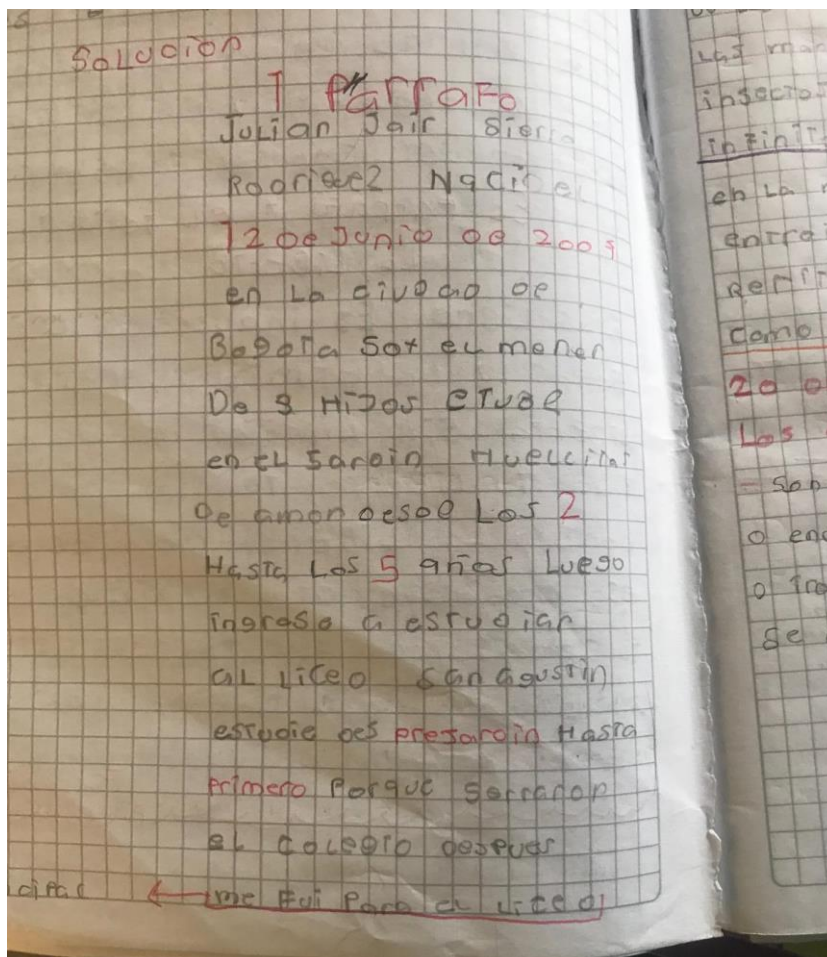 SOLUCION
1 ParraFo
Julian Jair Sierra
Rodriguez Naci el
12 de Junio de 2009
en La ciudad de
Bogota Soy eL menor
De 3 HiJos eTube
en eL Jardin HueLLitas
De amor desde Los 2
HasTa Los 5 años Luego
ingreso a estudiar
aL Liceo San agustin
estudie des preJardin HasTa
Primero Porque Serraron
eL coLegio despues
me Fui Para eL Liceo
cipal
Las
insecto
en La
como
20
Los
- Son
o
o
Se